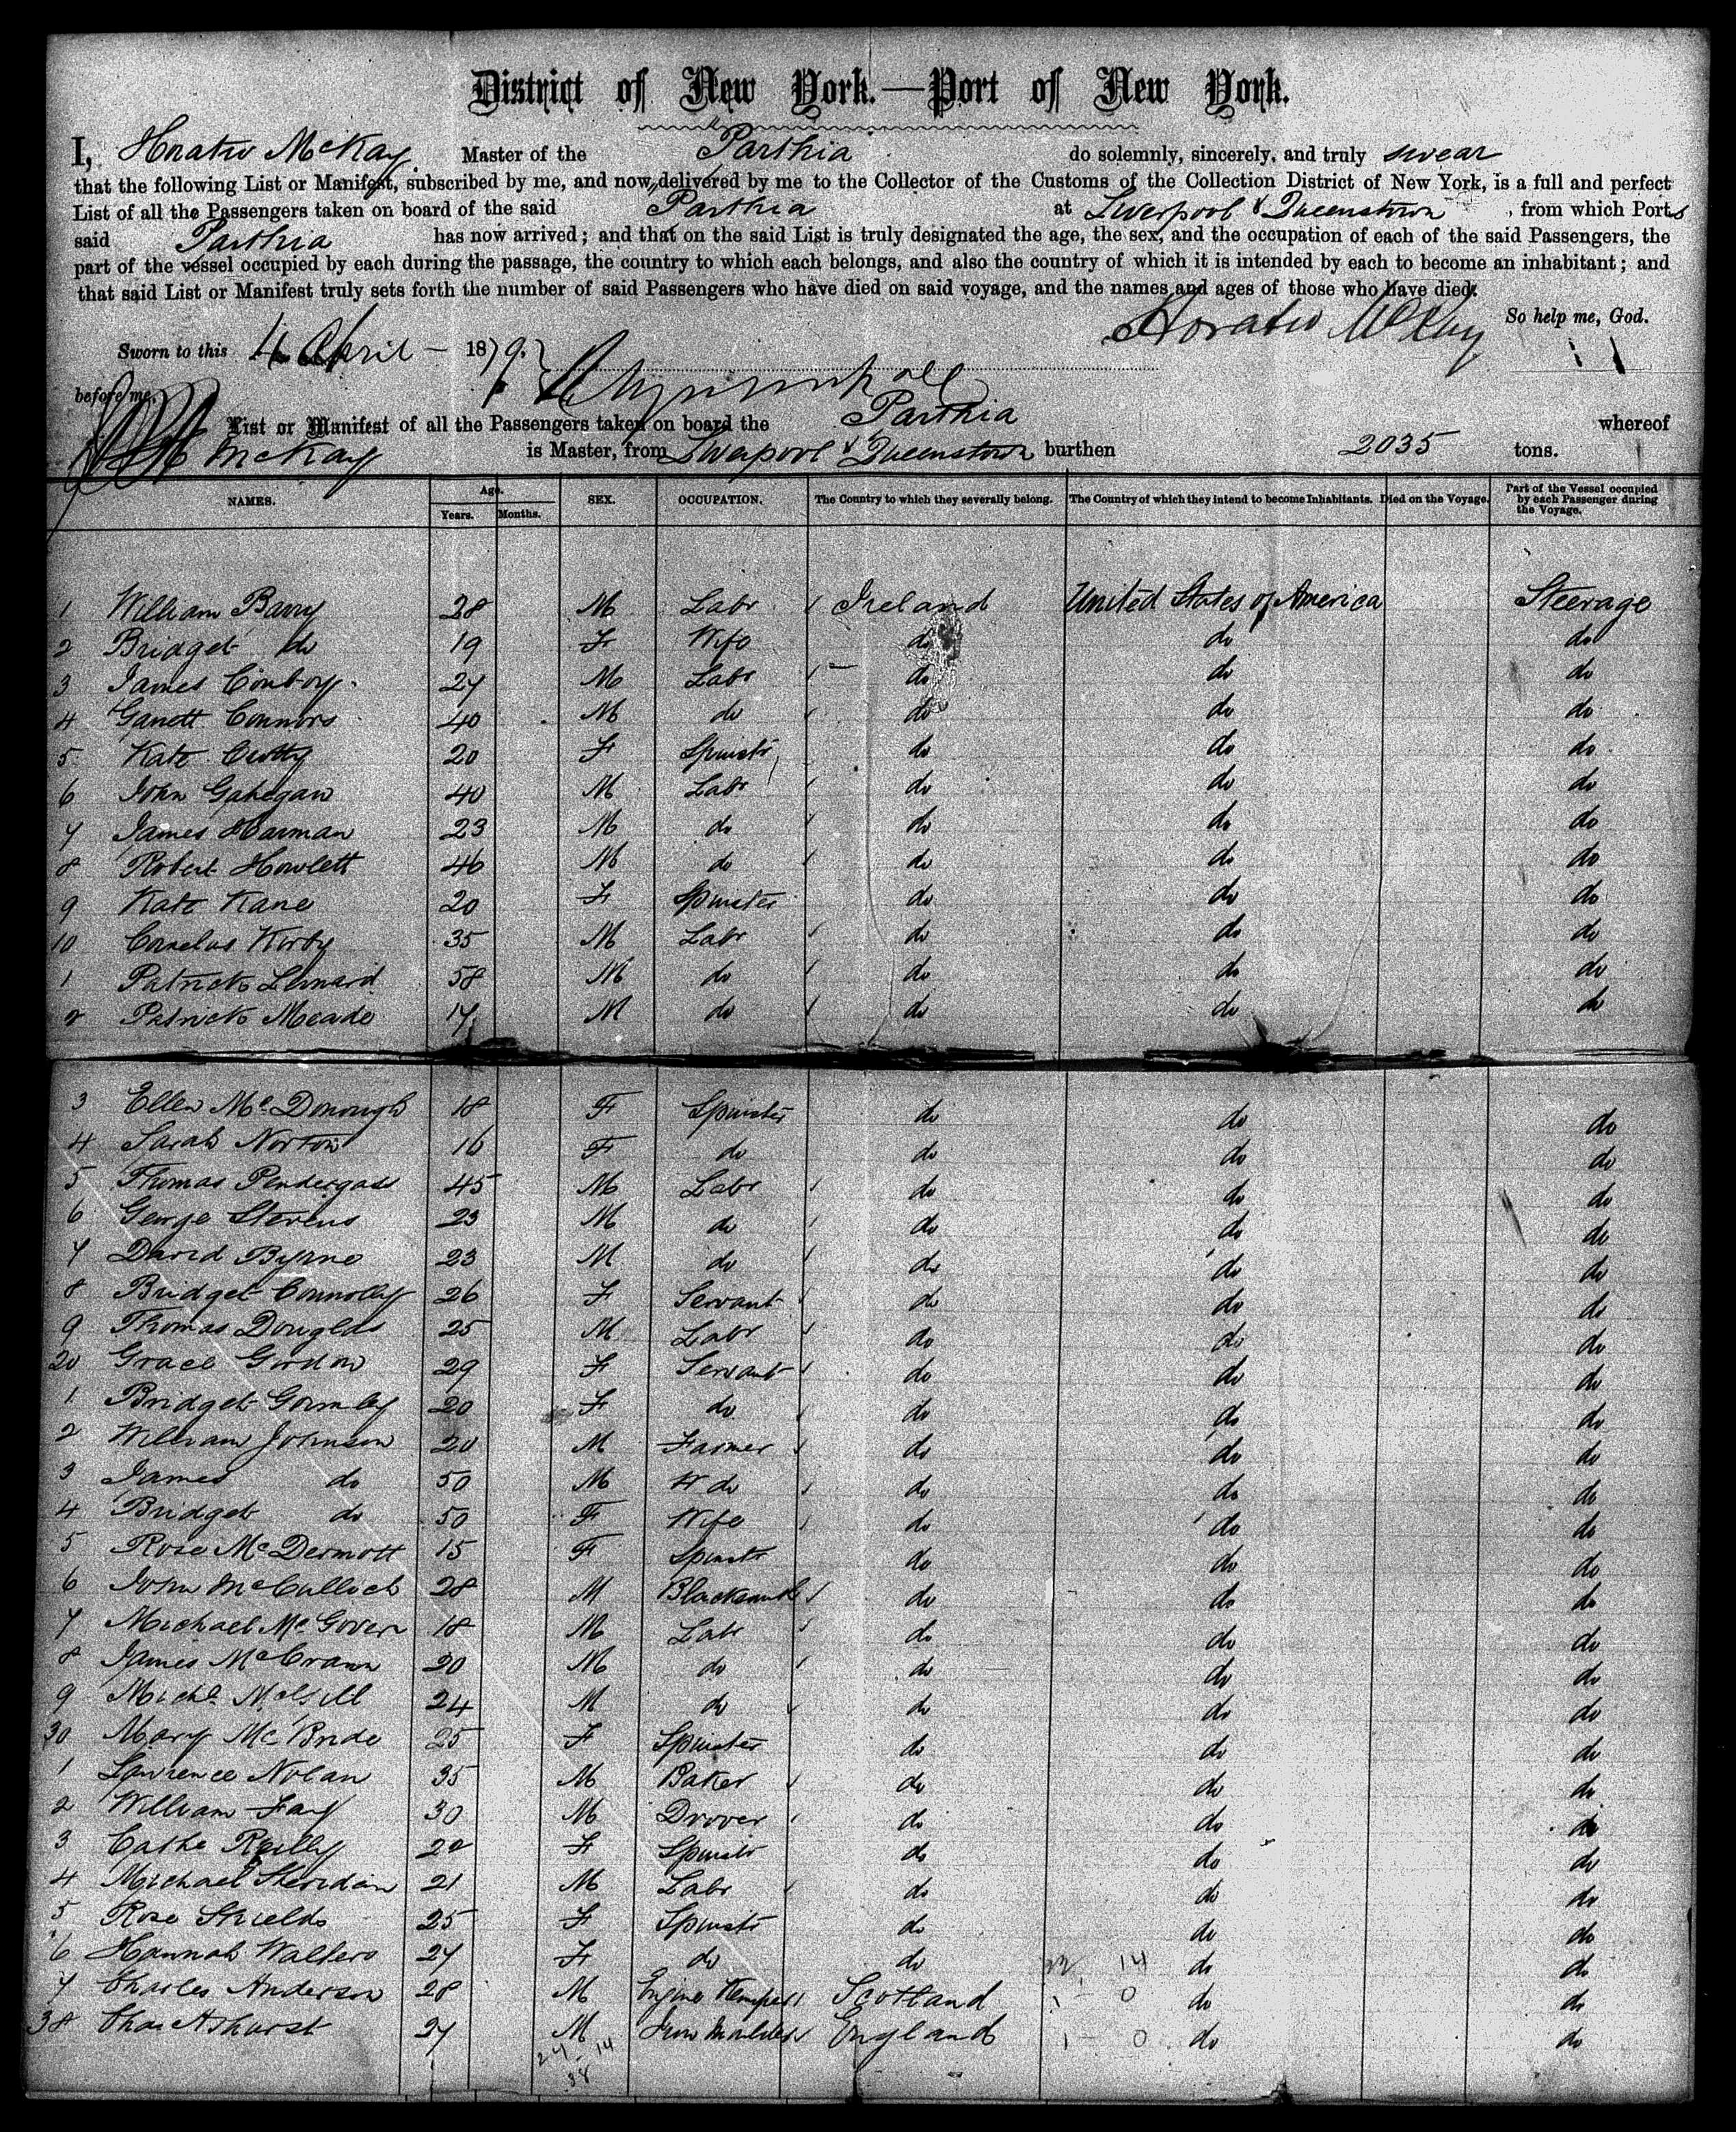 District of New York.—Port of New York.
I, Horatio McKay Master of the Parthia do solemnly, sincerely, and truly swear
that the following List or Manifest, subscribed by me, and now delivered by me to the Collector of the Customs of the Collection District of New York, is a full and perfect
List of all the Passengers taken on board of the said Parthia at Liverpool & Queenstown, from which Ports
said Parthia has now arrived; and that on the said List is truly designated the age, the sex, and the occupation of each of the said Passengers, the
part of the vessel occupied by each during the passage, the country to which each belongs, and also the country of which it is intended by each to become an inhabitant; and
that said List or Manifest truly sets forth the number of said Passengers who have died on said voyage, and the names and ages of those who have died.
So help me, God.
Horatio McKay
Sworn to this 4 April 1879.
before me,
List or Manifest of all the Passengers taken on board the Parthia whereof
McKay is Master, from Liverpool & Queenstown burthen 2035 tons.
NAMES. Age. Years. Months. SEX. OCCUPATION. The Country to which they severally belong. The Country of which they intend to become Inhabitants. Died on the Voyage. Part of the Vessel occupied by each Passenger during the Voyage.
1 William Barry 28 M Labr Ireland United States of America Steerage
2 Bridget do 19 F Wife do do do
3 James Conboy 27 M Labr do do do
4 Garrett Connors 40 M do do do do
5 Kate Crotty 20 F Spinstr do do do
6 John Gahegan 40 M Labr do do do
7 James Harman 23 M do do do do
8 Robert Howlett 46 M do do do do
9 Kate Kane 20 F Spinster do do do
10 Cornelus Kirby 35 M Labr do do do
1 Patrick Lennard 58 M do do do do
2 Patrick Meade 17 M do do do do
3 Ellen McDonough 18 F Spinster do do do
4 Sarah Norton 16 F do do do do
5 Thomas Pendergass 45 M Labr do do do
6 George Stevens 23 M do do do do
7 David Byrne 23 M do do do do
8 Bridget Connolly 26 F Servant do do do
9 Thomas Douglas 25 M Labr do do do
20 Grace Gordon 29 F Servant do do do
1 Bridget Gormley 20 F do do do do
2 William Johnson 20 M Farmer do do do
3 James do 50 M do do do do
4 Bridget do 50 F Wife do do do
5 Rose McDermott 15 F Spinstr do do do
6 John McCulloch 28 M Blacksmith do do do
7 Michael McGovern 18 M Labr do do do
8 James McCrann 20 M do do do do
9 Michl McGill 24 M do do do do
30 Mary McBride 25 F Spinster do do do
1 Lawrence Nolan 35 M Baker do do do
2 William Fay 30 M Drover do do do
3 Cathe Reilly 22 F Spinstr do do do
4 Michael Sheridan 21 M Labr do do do
5 Rose Shields 25 F Spinstr do do do
6 Hannah Walters 27 F do do 22 14 do do
7 Charles Anderson 28 M Engine Kemper Scotland 1 - 0 do do
38 Chas Ashurst 27 M Iron Moulder England 1 - 0 do do
24 - 14
38